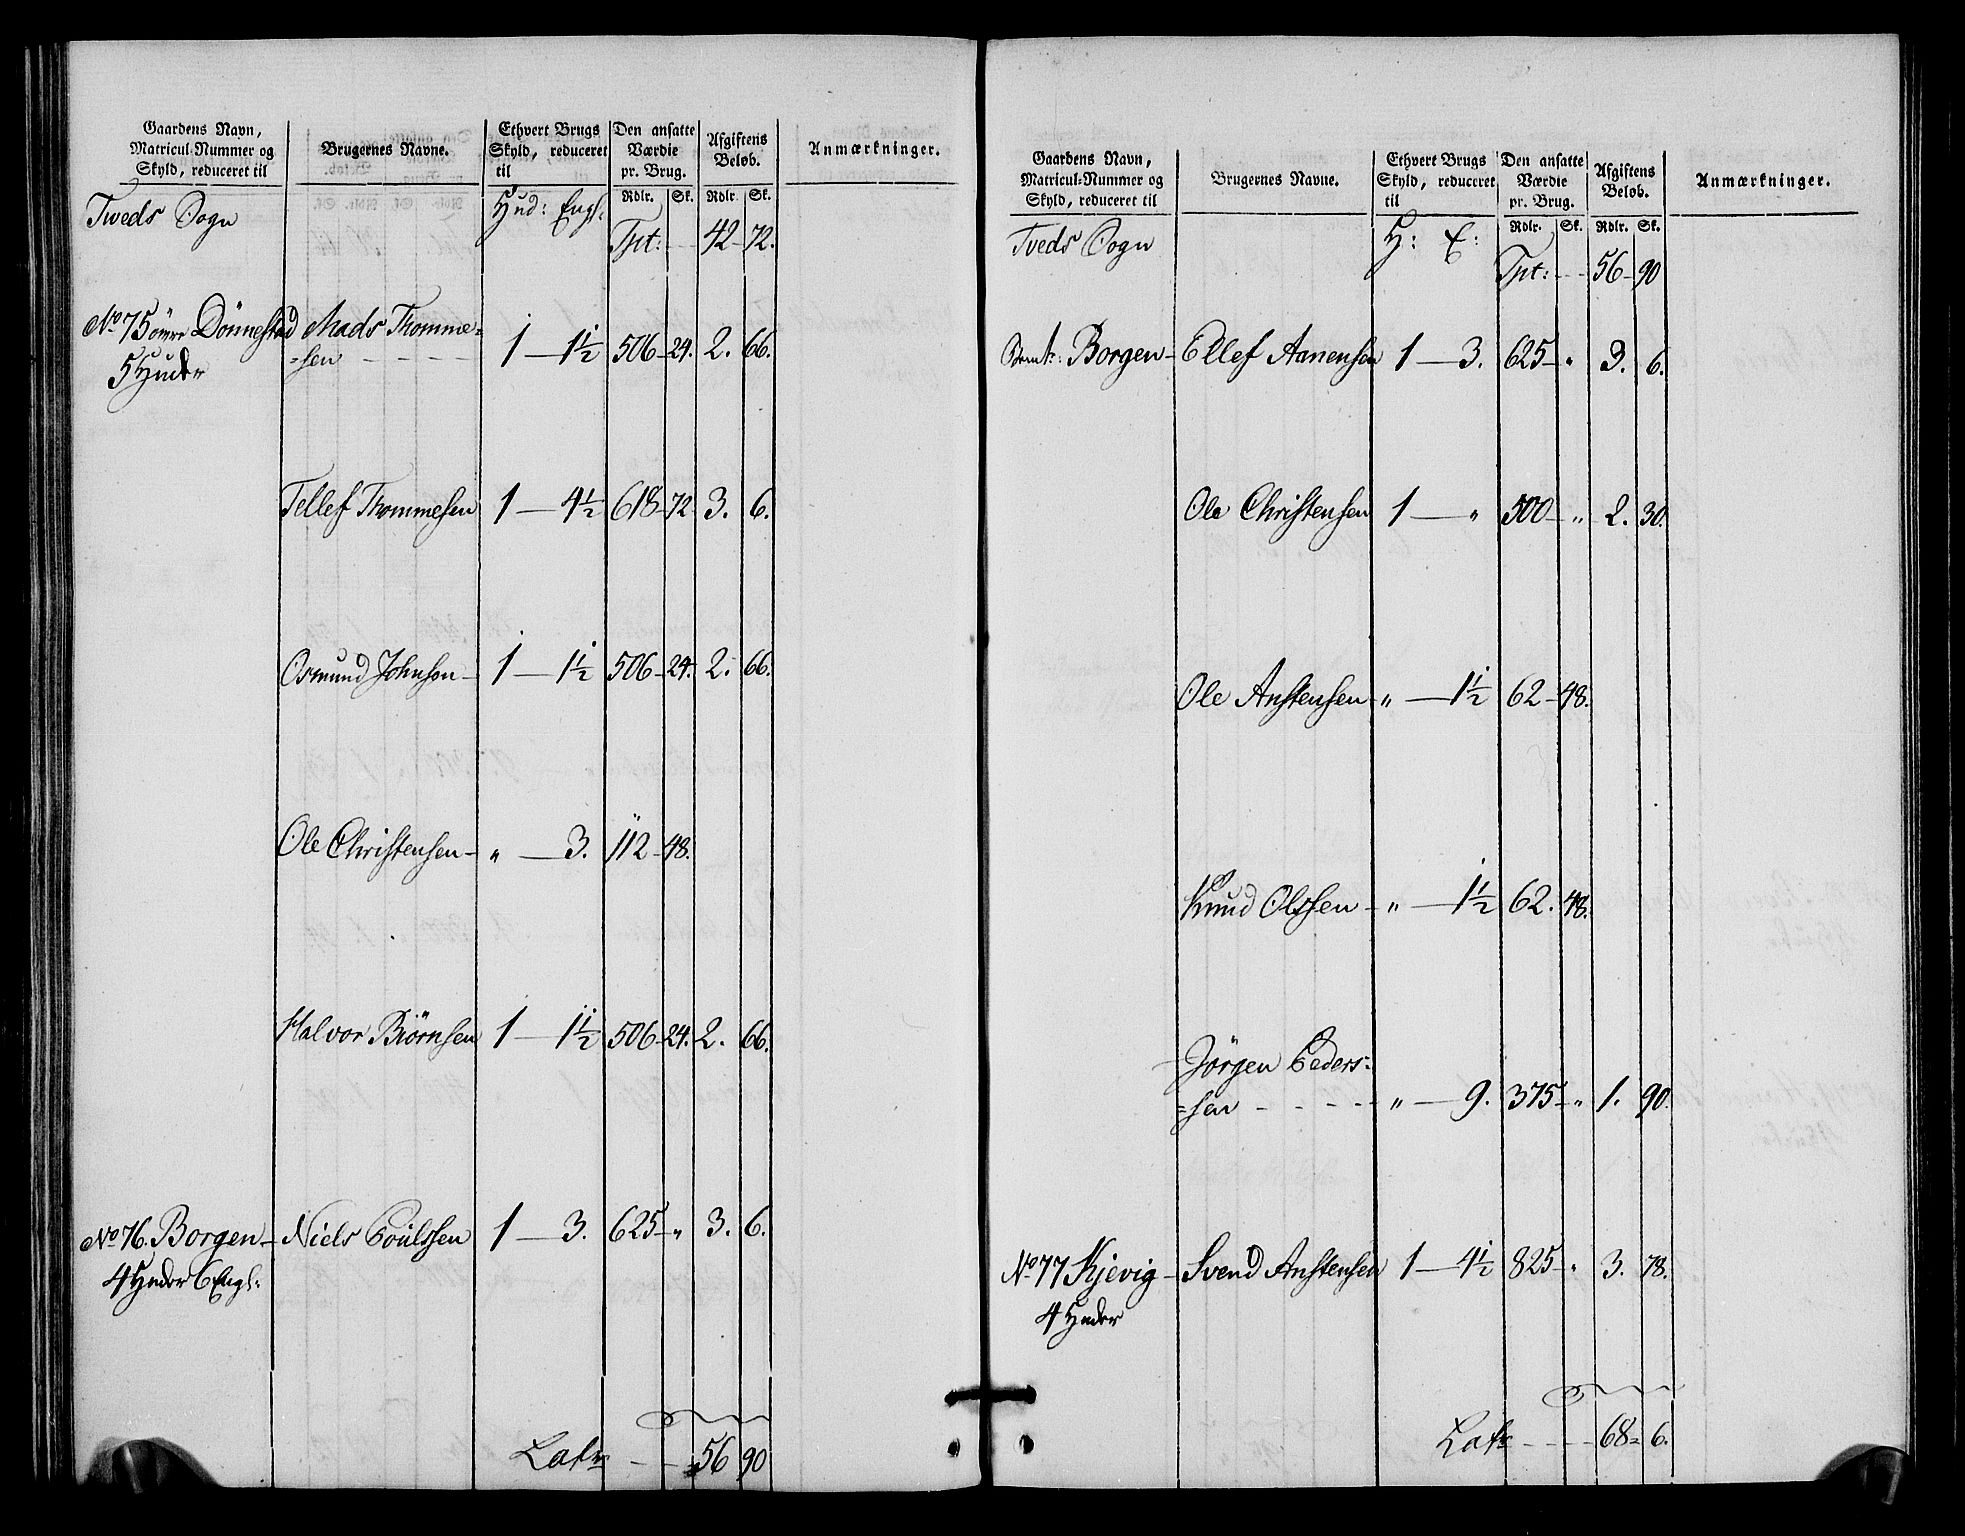 Gaardens Navn, Matricul-Nummer og Skyld, reduceret til | Brugernes Navne. | Ethvert Brugs Skyld, reduceret til | Den ansatte Værdie pr. Brug. | Afgiftens Beløb. | Anmærkninger.
Rdlr. Sk. Rdlr. Sk.
Tweds Sogn Hud: Engl.
Tpt: 42 - 72.
No 75 øvre Dönnestad Mads Thomme=
=sen 1 - 1½ 506 - 24. 2. 66.
5 Huder
Tellef Thommesen 1 - 4½ 618 - 72 3. 6.
Osmund Johnsen 1 - 1½ 506 - 24. 2. 66.
Ole Christensen - „ - 3. 112 - 48.
Halvor Biørnsen 1 - 1½ 506 - 24. 2. 66.
No 76. Borgen - Niels Poülssen 1 - 3. 625 - „ 3. 6.
4 Huder 6 Engl:
Latr 56 90
Gaardens Navn, Matricul-Nummer og Skyld, reduceret til | Brugernes Navne. | Ethvert Brugs Skyld, reduceret til | Den ansatte Værdie pr. Brug. | Afgiftens Beløb. | Anmærkninger.
Rdlr. Sk. Rdlr. Sk.
Tveds Sogn H: E:
Tpt: 56 - 90
Borgen - Ellef Aanensen 1 - 3. 625 - „ 3. 6.
Ole Christensen 1 - „ 500 - „ 2. 30.
Ole Anstensen - „ - 1½ 62 - 48.
Knud Olssen - „ - 1½ 62. 48.
Jörgen Peders=
=sen - „ - 9. 375 - „ 1. 90.
No 77 Kjevig - Svend Anstensen 1 - 4½ 825 - „ 3. 78.
4 Huder
Latr 68 = 6.